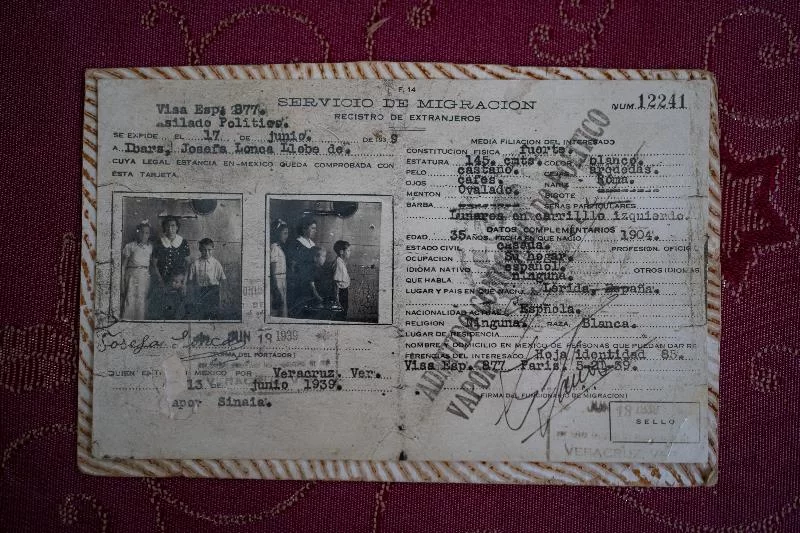 F. 14
SERVICIO DE MIGRACION
REGISTRO DE EXTRANJEROS
NUM. 12241
Visa Esp. 877.
Asilado Politico.
SE EXPIDE EL 17 DE junio. DE 1939
A Ibars, Josefa Lonca Llebe de.
CUYA LEGAL ESTANCIA EN MEXICO QUEDA COMPROBADA CON
ESTA TARJETA.
Josefa Lonca
JUN 13 1939
(FIRMA DEL PORTADOR)
MEXICO POR Veracruz. Ver.
13 DE junio 1939.
Vapor Sinaia.
MEDIA FILIACION DEL INTERESADO
CONSTITUCION FISICA fuerte.
ESTATURA 145. cmts. COLOR blanco.
PELO castaño. CEJAS arquedas.
OJOS cafes. NARIZ Roma.
MENTON Ovalado. BIGOTE
BARBA SEÑAS PARTICULARES
Lunares en carrilllo izquierdo.
DATOS COMPLEMENTARIOS
EDAD 35 AÑOS. FECHA EN QUE NACIO 1904.
ESTADO CIVIL casada. PROFESION, OFICIO
OCUPACION Su hogar.
IDIOMA NATIVO español. OTROS IDIOMAS
QUE HABLA ninguna.
LUGAR Y PAIS EN QUE NACIO Lérida, España.
NACIONALIDAD ACTUAL Española.
RELIGION Ninguna. RAZA Blanca.
LUGAR DE RESIDENCIA
NOMBRE Y DOMICILIO EN MEXICO DE PERSONAS QUE PUEDAN DAR RE
FERENCIAS DEL INTERESADO Hoja identidad 85.
Visa Esp. 877 Paris. 5-21-39.
(FIRMA DEL FUNCIONARIO DE MIGRACION)
SELLO
VERACRUZ, VER.